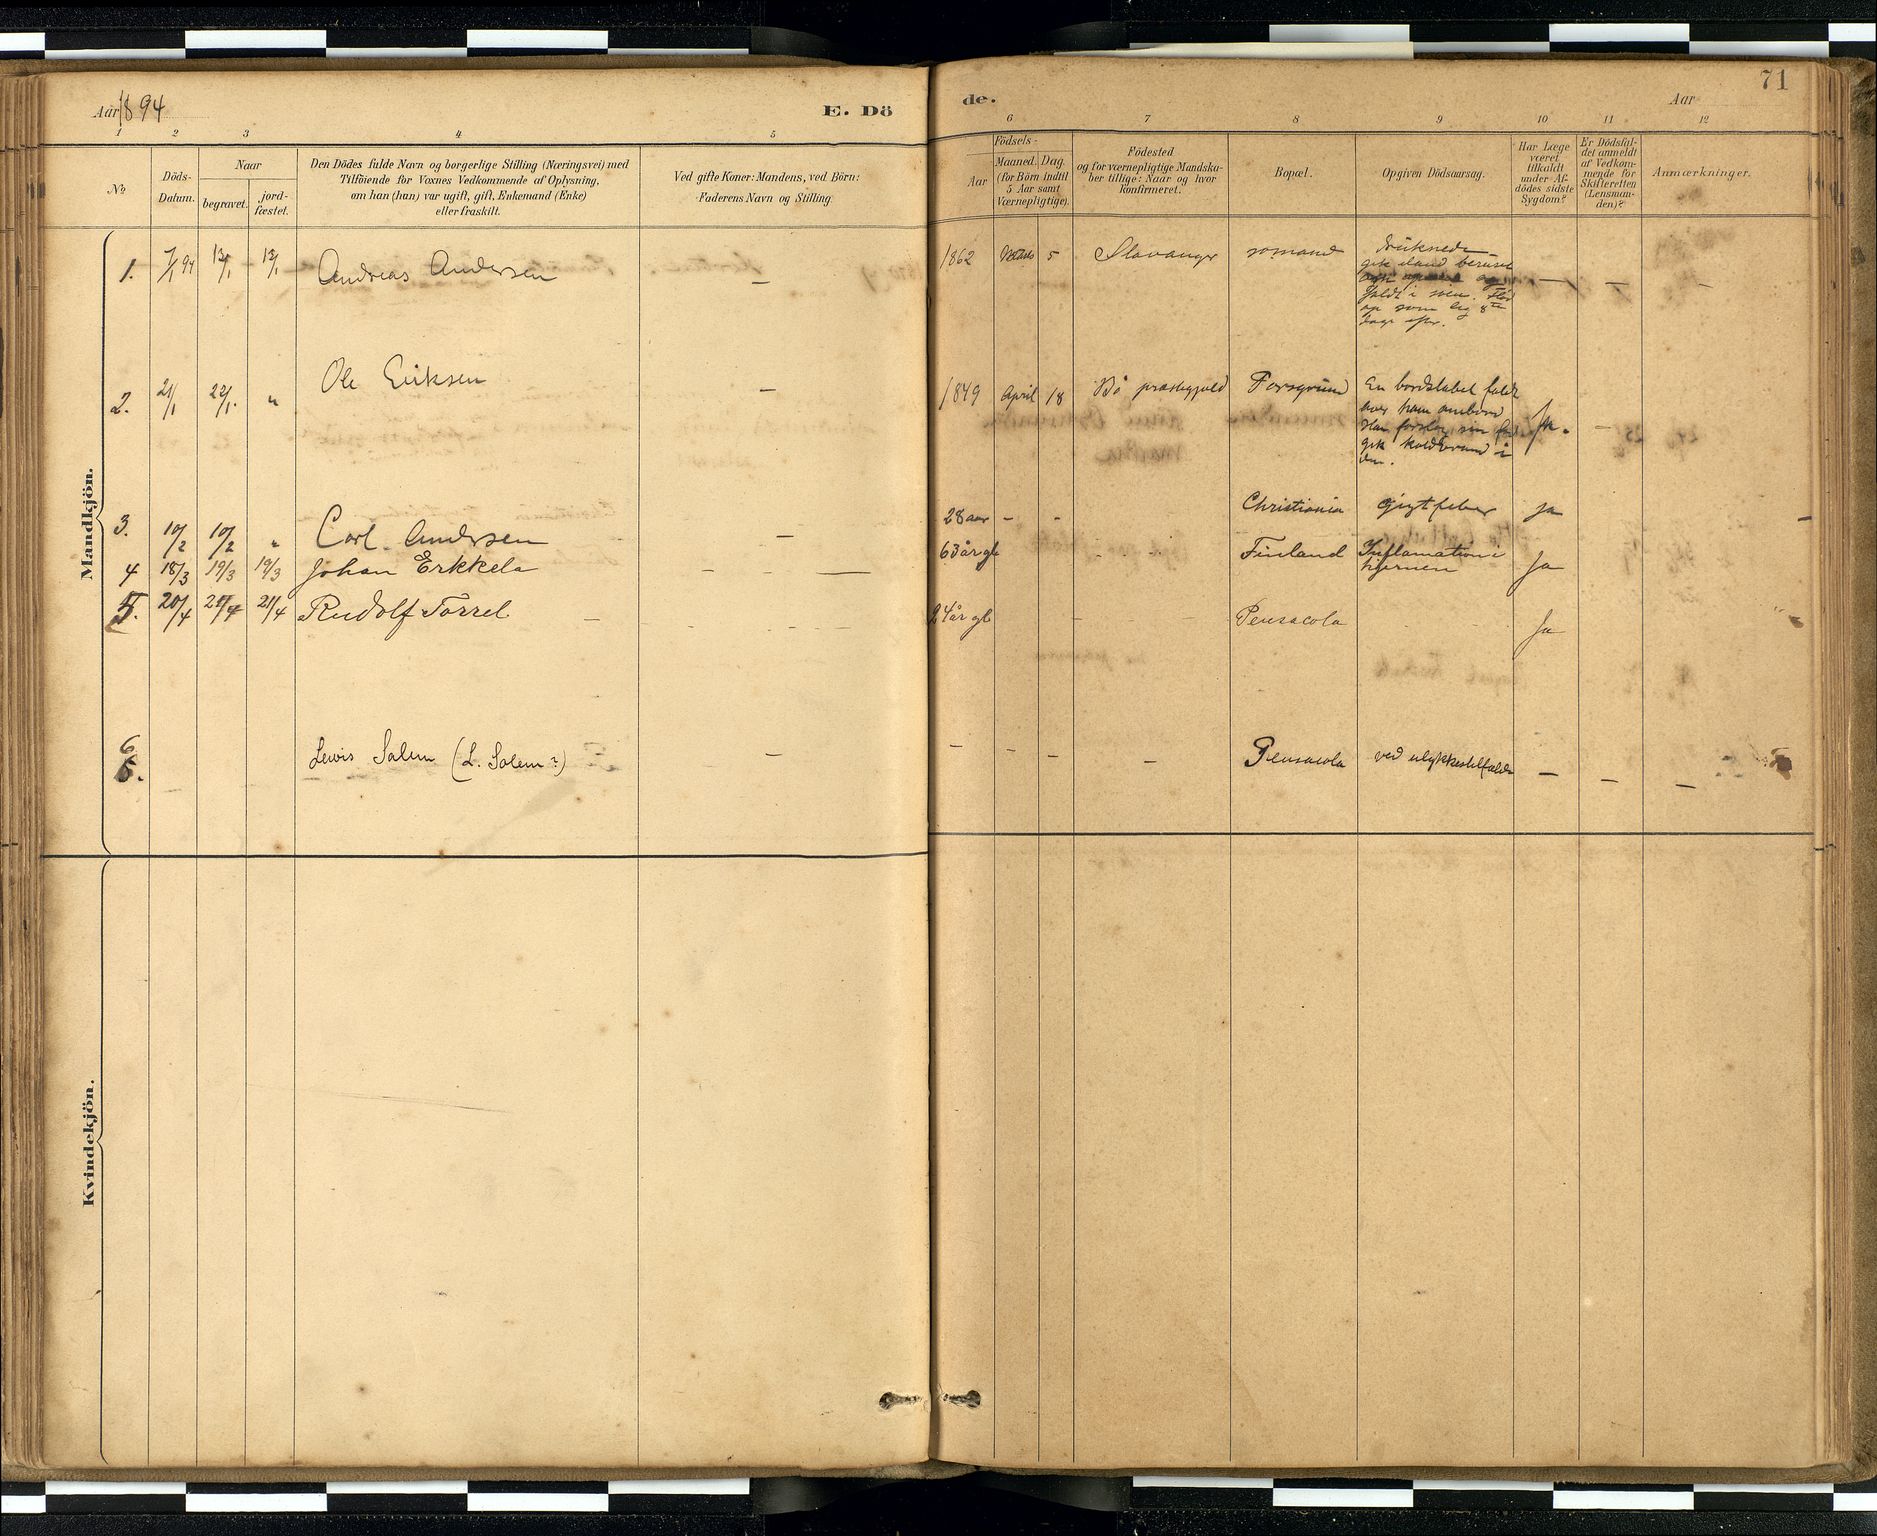 Aar 1894
E. Dö
de.
Aar
71
1 2 3 4 5 6 7 8 9 10 11 12
No
Döds-
Datum.
Naar
begravet.
jord-
fæstet.
Den Dödes fulde Navn og borgerlige Stilling (Næringsvei) med
Tilföiende for Voxnes Vedkommende af Oplysning,
om han (hun) var ugift, gift, Enkemand (Enke)
eller fraskilt.
Ved gifte Koner: Mandens, ved Börn:
Faderens Navn og Stilling
Födsels-
Aar
Maaned. Dag.
(for Börn indtil
5 Aar samt
Værnepligtige).
Födested
og for værnepligtige Mandska-
ber tillige: Naar og hvor
konfirmeret.
Bopæl.
Opgiven Dödsaarsag.
Har Læge
været
tilkaldt
under Af-
dödes sidste
Sygdom?
Er Dödsfal-
det anmeldt
af Vedkom-
mende for
Skifteretten
(Lensman-
den)?
Anmærkninger.
Mandkjön.
1. 7/1 94 13/1 13/1 Andreas Andersen — 1862 5 Stavanger sömand druknede
gik iland beruset
og
faldt i sjøen. Flød
op som lig 8de
dage efter.
— — -
2. 21/1 22/1. " Ole Eriksen — 1849 April 18 Bö præstegjeld Porsgrund En bordstabel faldt
over ham ombord
Han forslog sin fod
gik koldbrand i
den.
Ja. —
3. 10/2 10/2 " Carl. Andersen — 28 aar - - Christiania Gigtfeber Ja
4 18/3 19/3 19/3 Johan Erkkela - — 63 år gl - - Finland Inflamation i
hjernen
Ja
5. 20/4 21/4 21/4 Rudolf Törrel — 24 år gl - - Pensacola Ja
6. Lewis Salem (L. Solem?) — — — - — Pensacola ved ulykkestilfælde — — —
Kvindekjön.